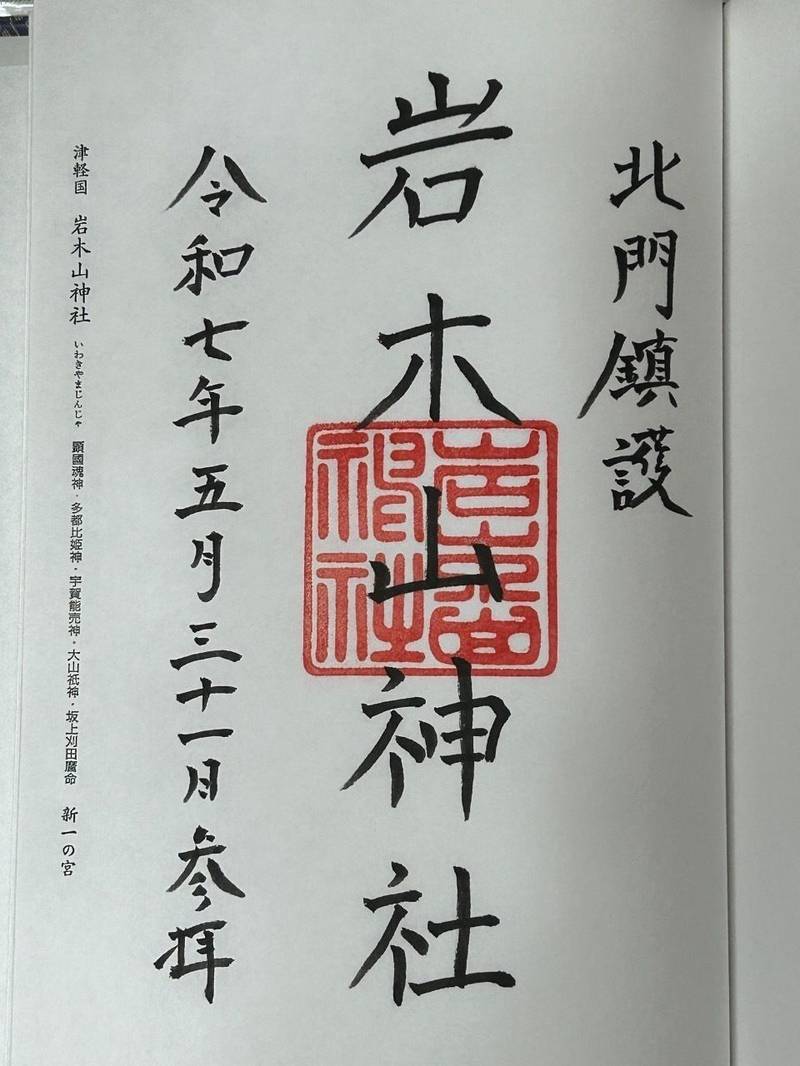 北門鎮護
岩木山神社
令和七年五月三十一日参拝
津軽国 岩木山神社 いわきやまじんじゃ 顕國魂神・多都比姫神・宇賀能売神・大山祇神・坂上刈田麿命 新一の宮